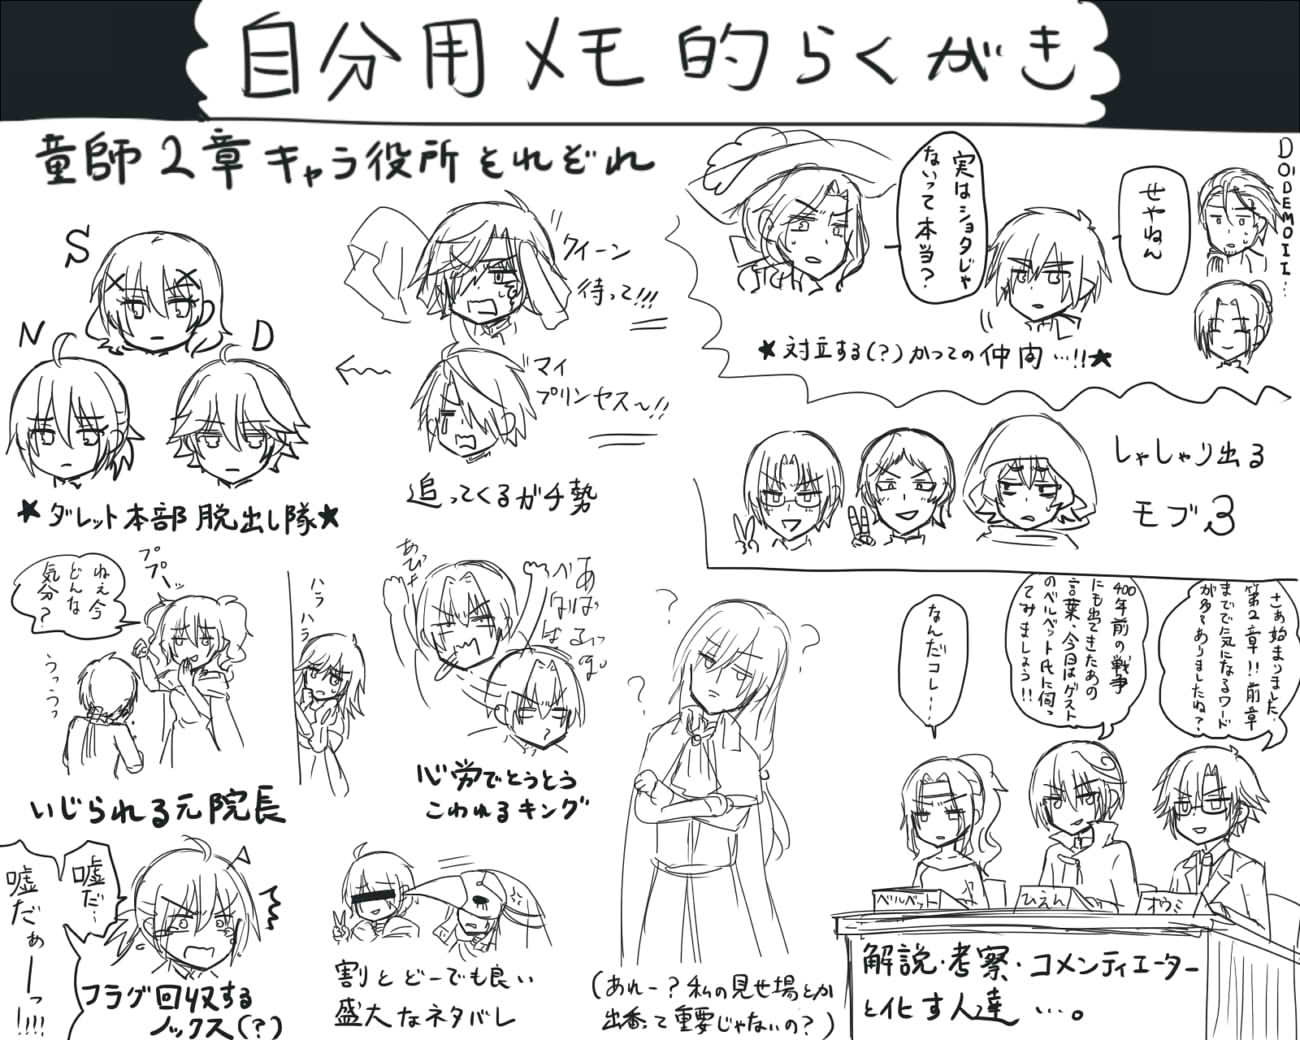 自分用メモ的らくがき
童師2章キャラ役所それぞれ
S
N
D
★ダレット本部脱出し隊★
クイーン
待って!!!
マイ
プリンセス〜!!
追ってくるガチ勢
実はショタじゃ
ないって本当?
せやねん
DODEMOII...
★対立する(?)かつての仲間…!!★
しゃしゃり出る
モブ3
ねぇ今
どんな
気分?
ププーッ
うっうっ
いじられる元院長
ハラ
ハラ
あびゃ
心労でとうとう
こわれるキング
嘘だ…
嘘だぁーーっ!!!!
フラグ回収する
ノックス(?)
割とどーでも良い
盛大なネタバレ
? ? ? ?
(あれー?私の見せ場とか
出番って重要じゃないの?)
さぁ始まりました、
第2章!!前章
までで気になるワード
が多々ありましたね?
400年前の戦争
にも出てきたあの
言葉、今日はゲスト
のベルベット氏に伺っ
てみましょう!!
なんだコレ…
ベルベット
ひえん
オウミ
解説・考察・コメンティエーター
と化す人達…。